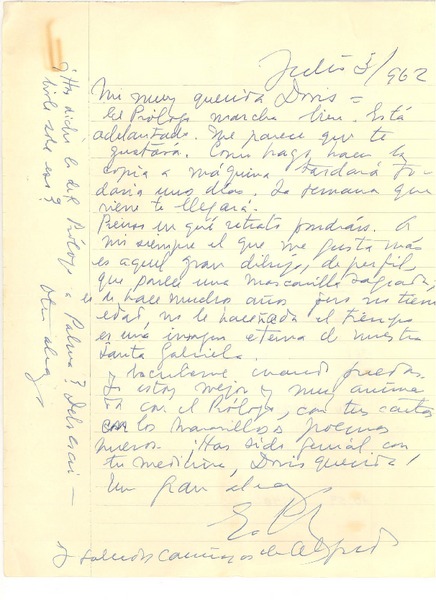 Julio 3/962
Mi muy querida Doris =
El Prólogo marcha bien. Está
adelantado. Me parece que te
gustará. Como hago hacer la
copia a máquina tardará to-
davía unos días. La semana que
viene te llegará.
Piensa en qué retrato pondráis. A
mí siempre el que me gusta más
es aquel gran dibujo, de perfil,
que parece una mascarilla sagrada,
es de hace muchos años pero no tiene
edad, no le hace nada el tiempo
es una imagen eterna de nuestra
Santa Gabriela.
Escríbeme cuando puedas.
Yo estoy mejor y muy anima-
da con el Prólogo, con tus cartas
con los maravillosos poemas
nuevos. ¡Has sido genial con
tu medicina, Doris querida!
Un gran abrazo
E. P.
Y saludos cariñosos de Alfredo
¿Has dicho lo del Prólogo a Palma? Debo escri-
birle sobre eso?
Otro abrazo